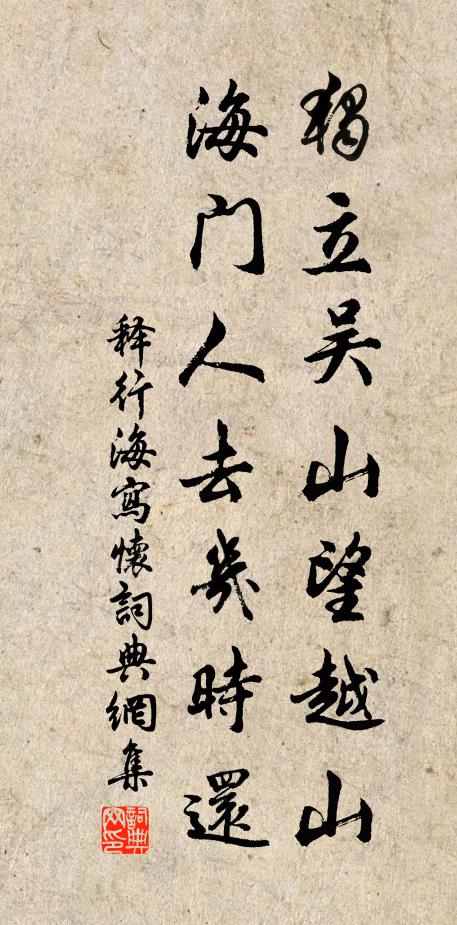 獨立吴山望越山
海門人去幾時還
释行海寫懷詞典網集
詞典
网印